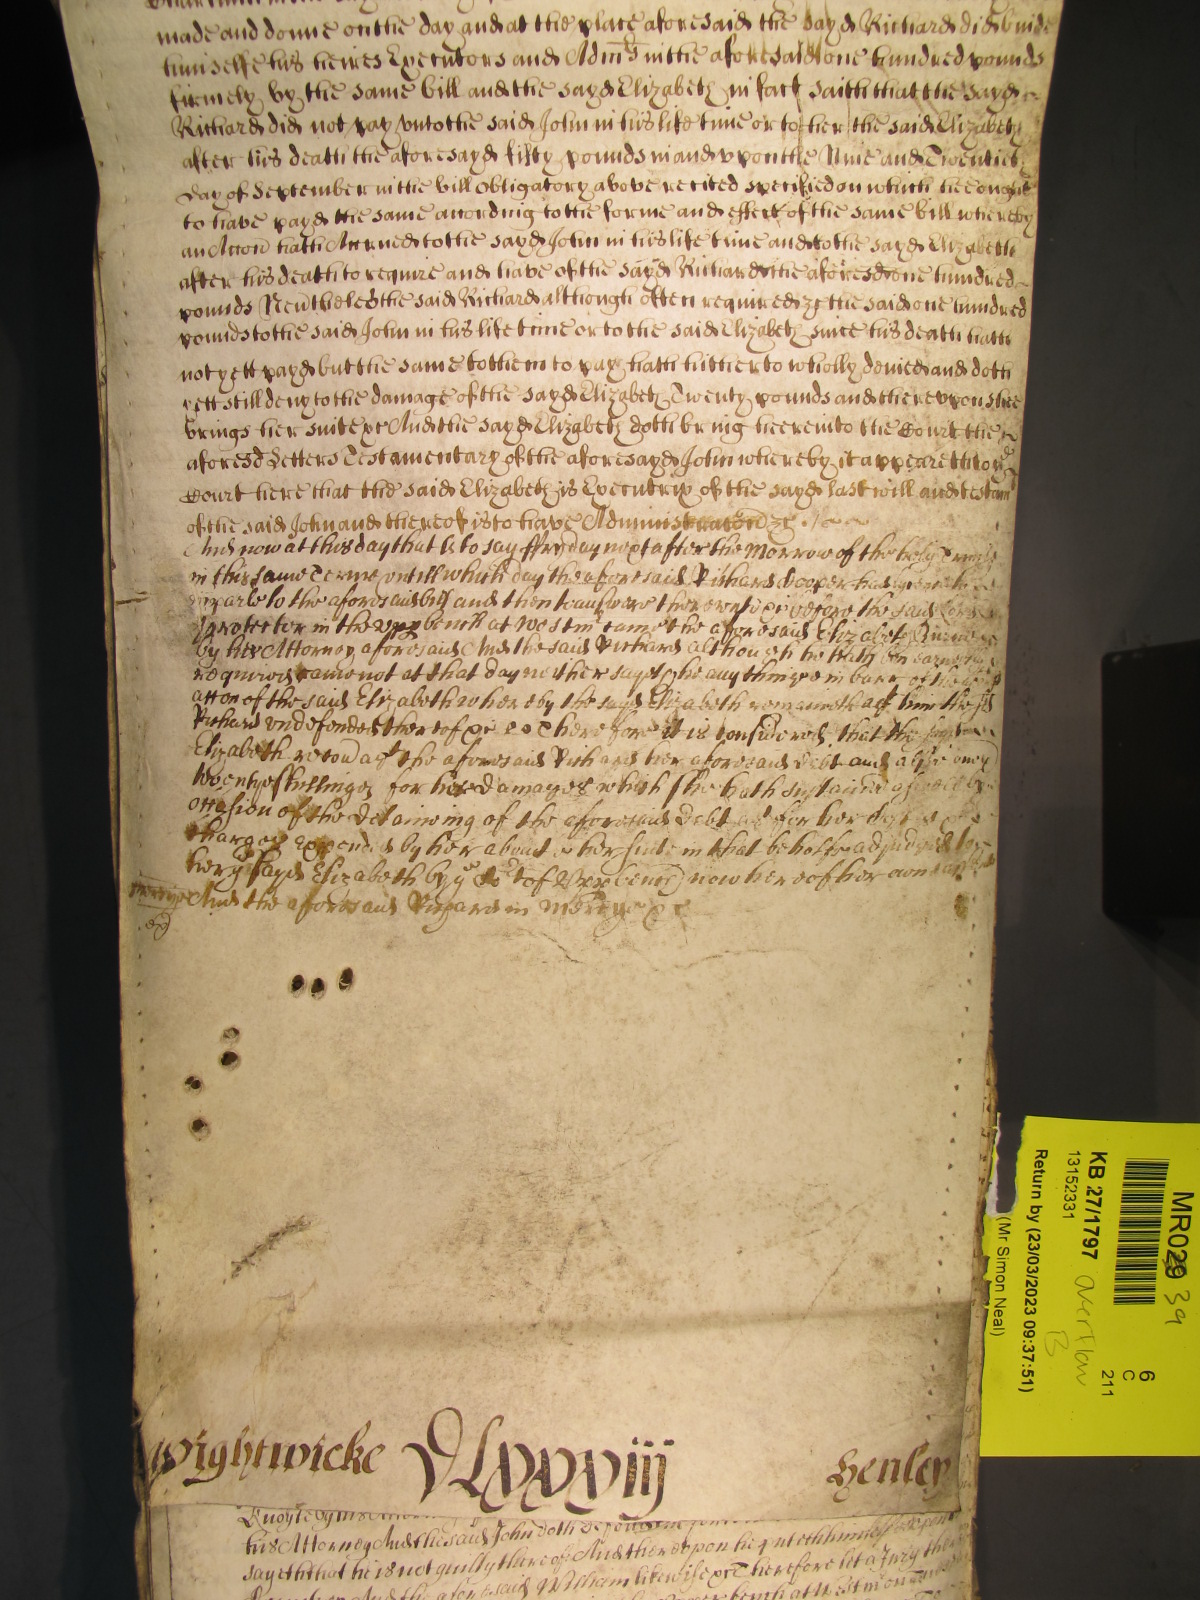 made and donne on the day and at the place aforesaid the sayd Richard did binde
himselfe his heires Executors and Adm̄s in the aforesaid one hundred pounds
firmely by the same bill and the sayd Elizabeth in fact saith that the sayd
Richard did not pay unto the said John in his life time or to her the said Elizabeth
after his death the aforesayd fifty pounds in and vpon the Nine and Twentieth
day of September in the bill obligatory above recited specified on which hee ought
to have payd the same according to the forme and effect of the same bill whereby
an Accon hath Accrued to the sayd John in his life time and to the sayd Elizabeth
after his death to require and have of the sayd Richard the aforesd one hundred
pounds Neuthelesse the said Richard although often required &c the said one hundred
pounds to the said John in his life time or to the said Elizabeth since his death hath
not yett payd but the same to them to pay hath hitherto wholly denied and doth
yett still deny to the damage of the sayd Elizabeth Twenty pounds and therevpon shee
brings her suite &c And the sayd Elizabeth doth bring here into the Court the
aforesd Letters Testamentary of the aforesayd John whereby it appeareth to
Court here that the said Elizabeth is Executrix of the sayd last will and testam
of the said John and thereof is to have Administracon &c
And now at this day that is to say ffryday next after the morrow of the holy Trinity
in this same Terme vntill which day the aforesaid Richard Cooper had
emparle to the aforesaid bill and then to answere therevnto &c before the said Lord
Protector in the vpp bench at Westm̄ came the aforesaid Elizabeth
by her Attorney aforesaid And the said Richard although he hath ben
required came not at that day neither sayeth he any thinge in barr of the
accon of the said Elizabeth whereby the sayd Elizabeth remaineth agt him the sd
Richard vndefended thereof &c Therefore it is considered that the sayd
Elizabeth recouer agt the aforesaid Richard her aforesaid debt and alsoe
twenty shillings for her damages which she hath sustained aswell by
occasion of the detaining of the aforesaid debt as for her
charges expended by her about her suite in that behalfe adjudged to
her y sayd Elizabeth by y Court of Vpp bench now here of her owne
And the aforesaid Richard in Mercy &c
Wightwicke DLxxxviij Henley
his Attorney And the said John doth
sayeth that he is not guilty thereof And therevpon he putteth himselfe
And the aforesaid William likewise &c Therefore let a Jury
MR029 39
6
C
211
KB 27/1797 overflow
B
13152331
Return by (23/03/2023 09:37:51)
(Mr Simon Neal)